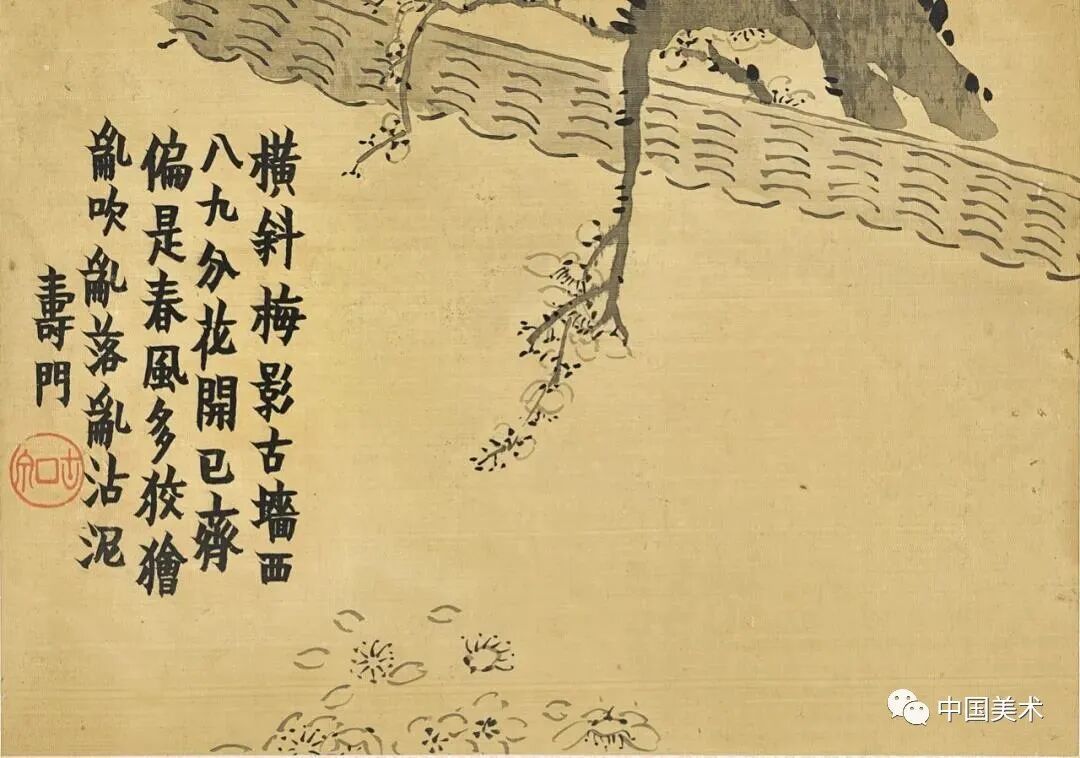 橫斜梅影古墻西
八九分花開已齊
偏是春風多狡獪
亂吹亂落亂沾泥
壽門
中国美术